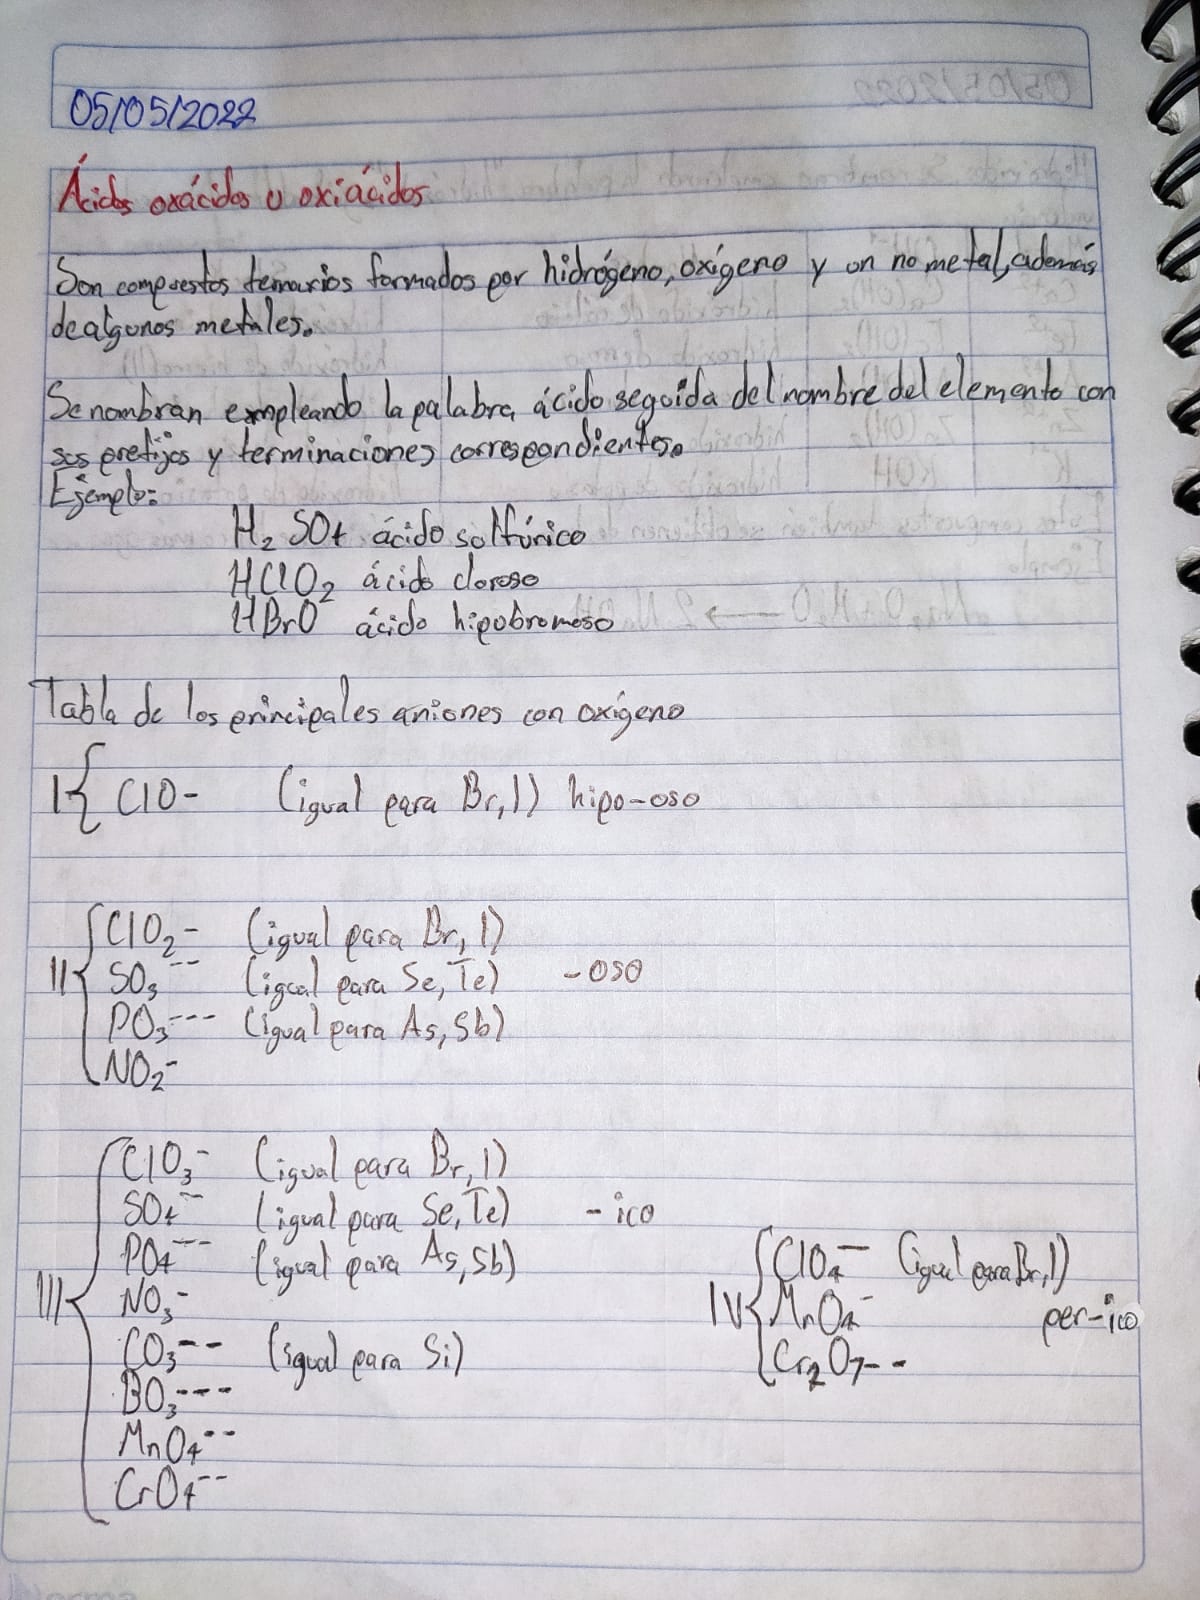 05/05/2022
Ácidos oxácidos u oxiácidos
Son compuestos ternarios formados por hidrógeno, oxígeno y un no metal, además
de algunos metales.
Se nombran empleando la palabra ácido seguida del nombre del elemento con
sus prefijos y terminaciones correspondientes.
Ejemplo:
H₂SO₄ ácido sulfúrico
HClO₂ ácido cloroso
HBrO ácido hipobromoso
Tabla de los principales aniones con oxígeno
I { ClO- (igual para Br, I) hipo-oso
II { ClO₂- (igual para Br, I)
SO₃-- (igual para Se, Te) -oso
PO₃--- (igual para As, Sb)
NO₂-
III { ClO₃- (igual para Br, I)
SO₄-- (igual para Se, Te) -ico
PO₄--- (igual para As, Sb)
NO₃-
CO₃-- (igual para Si)
BO₃---
MnO₄--
CrO₄--
IV { ClO₄- (igual para Br, I)
MnO₄- per-ico
Cr₂O₇--